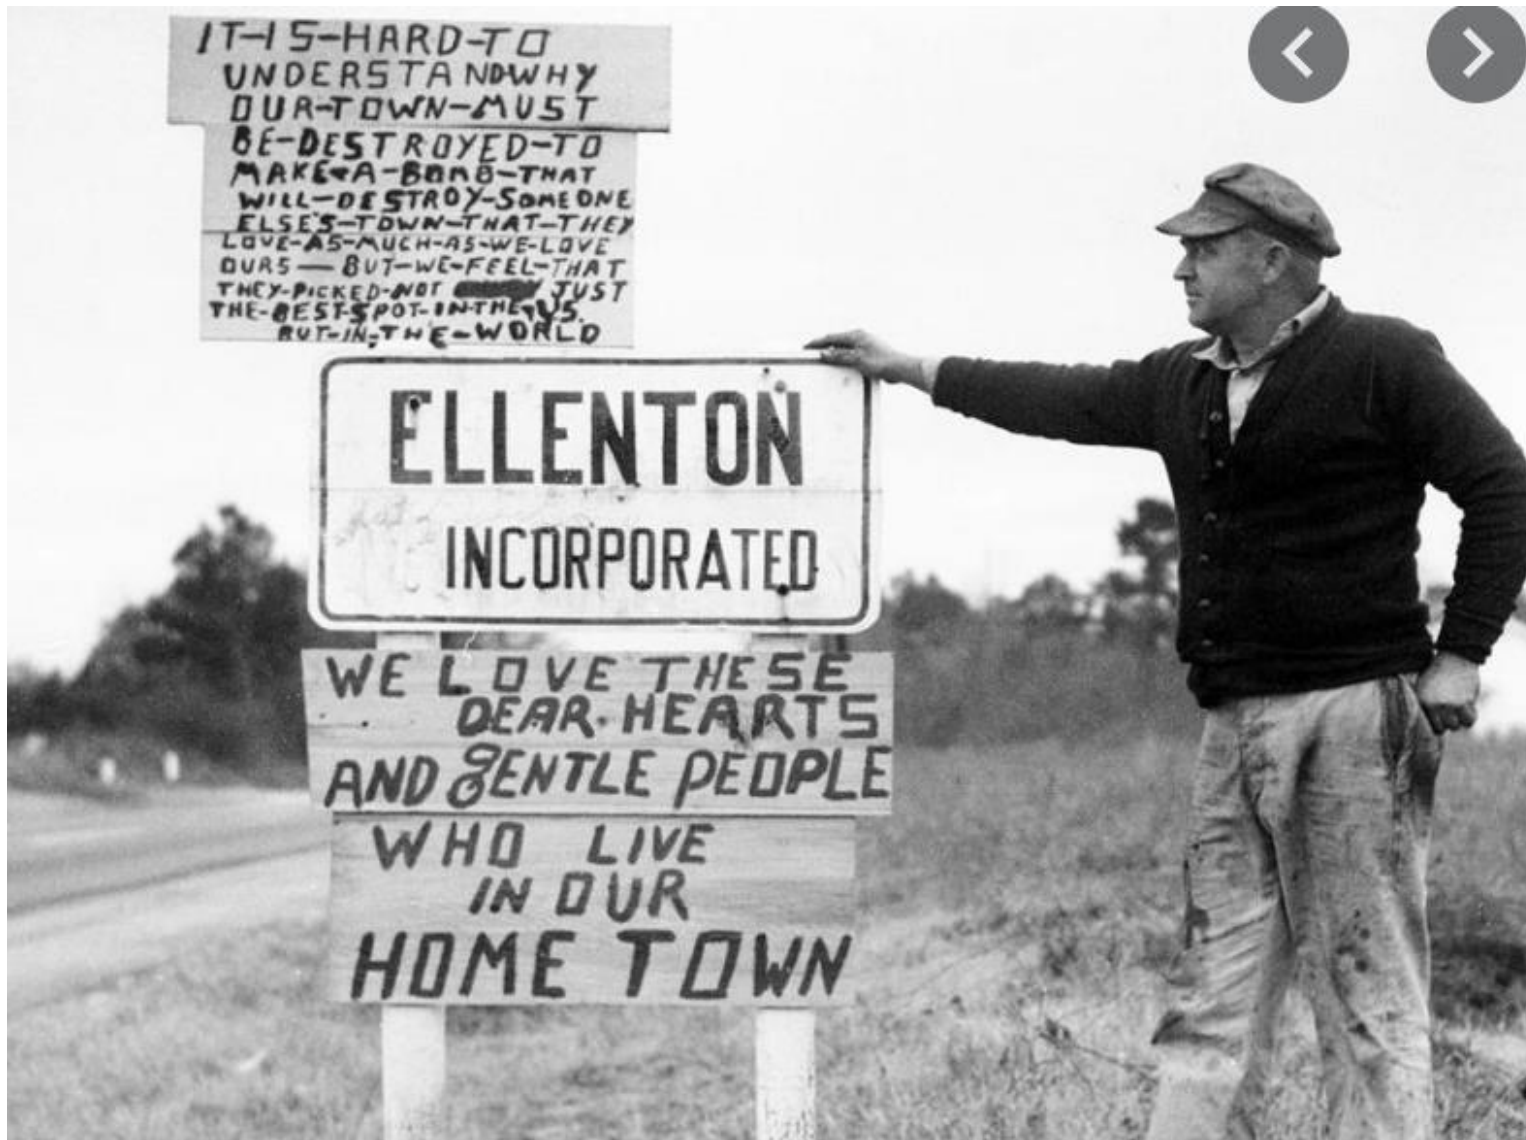 IT-IS-HARD-TO
UNDERSTANDWHY
OUR-TOWN-MUST
BE-DESTROYED-TO
MAKE-A-BOMB-THAT
WILL-DESTROY-SOMEONE
ELSE'S-TOWN-THAT-THEY
LOVE-AS-MUCH-AS-WE-LOVE
OURS — BUT-WE-FEEL-THAT
THEY-PICKED-NOT JUST
THE-BEST-SPOT-IN-THE-US.
BUT-IN-THE-WORLD
ELLENTON
INCORPORATED
WE LOVE THESE
DEAR HEARTS
AND GENTLE PEOPLE
WHO LIVE
IN OUR
HOME TOWN